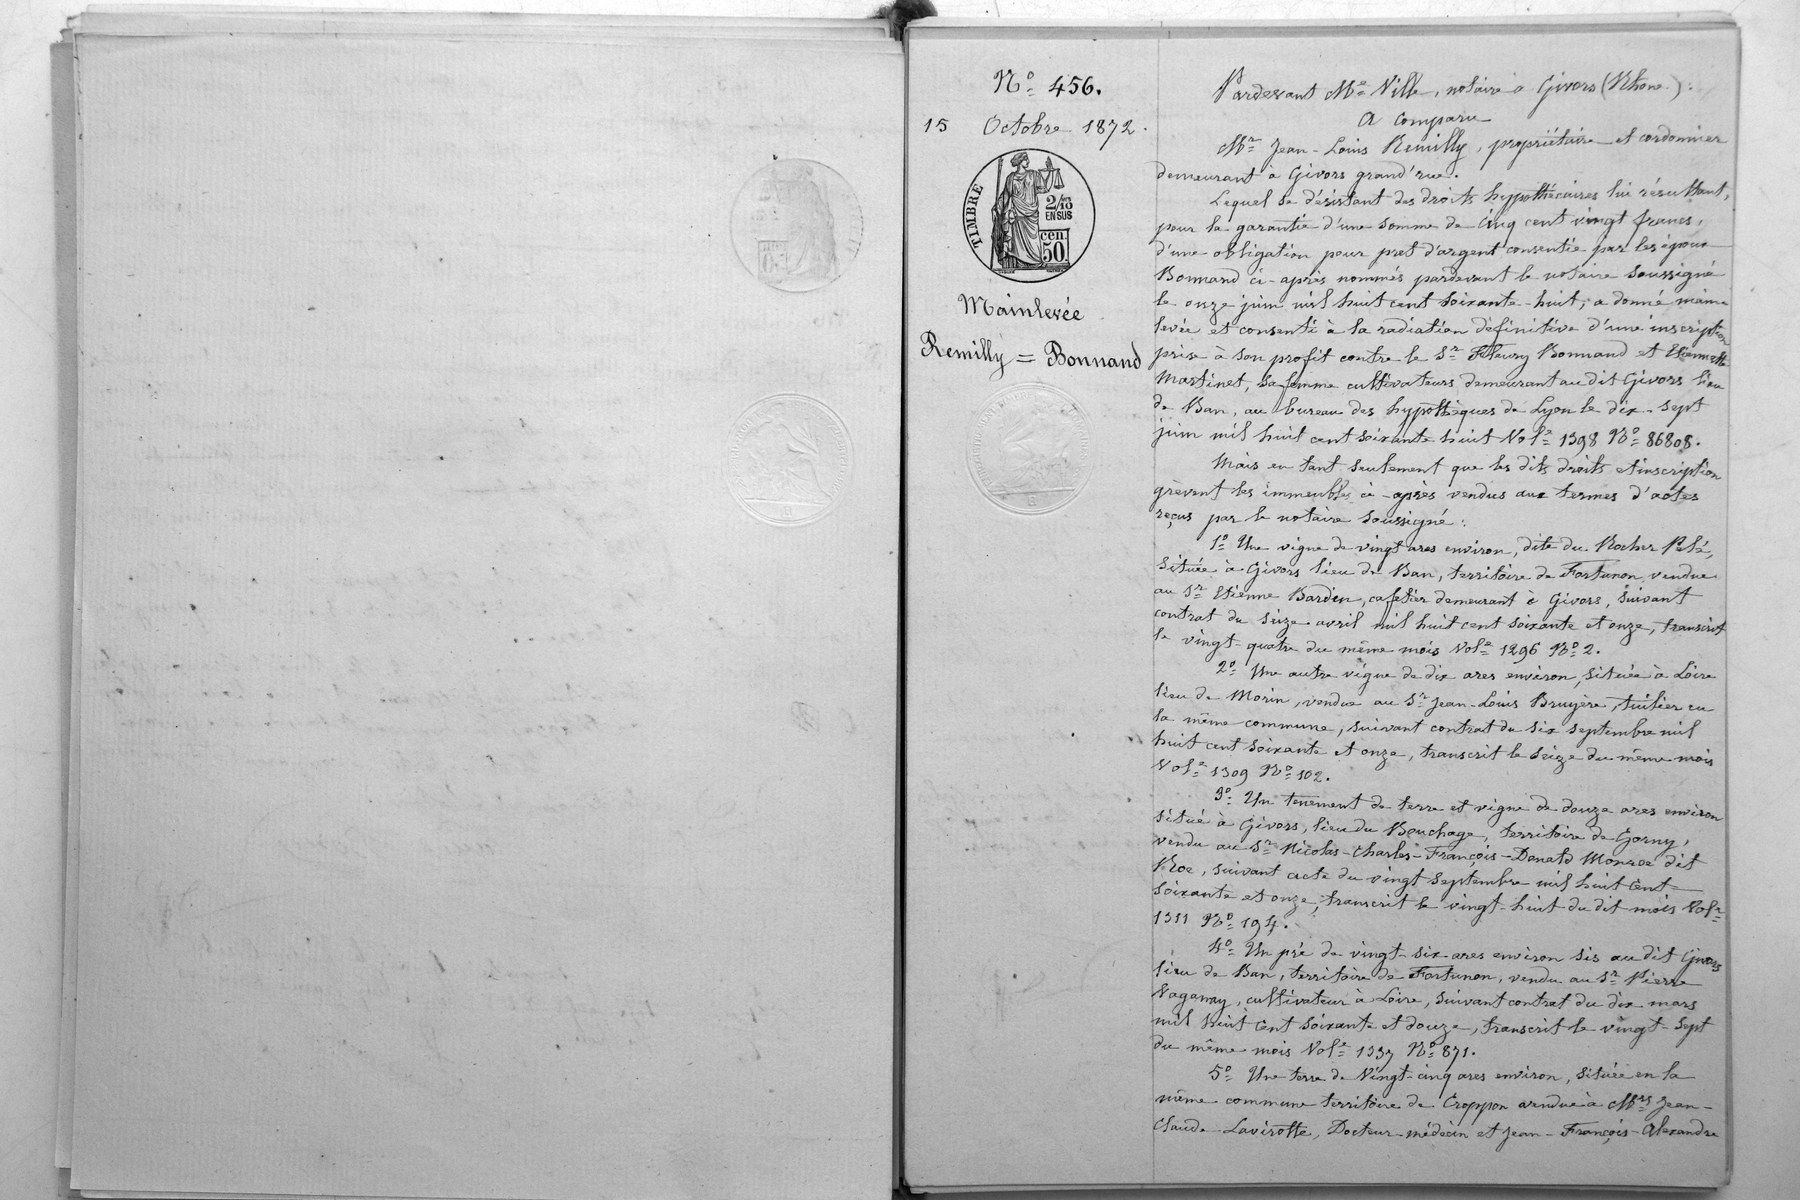 N° 456.
15 Octobre 1872.
TIMBRE
2/10
EN SUS
cen.
50.
Mainlevée
Remilly = Bonnand
Pardevant Me Ville, notaire à Givors (Rhone):
A comparu
Mr Jean-Louis Remilly, propriétaire et cordonnier
demeurant à Givors grand'rue.
Lequel se désistant des droits hypothécaires lui résultant,
pour la garantie d'une somme de Cinq cent vingt francs,
d'une obligation pour pret d'argent consentie par les époux
Bonnand ci-après nommés pardevant le notaire soussigné
le onze juin mil huit cent soixante-huit, a donné main
levée et consenti à la radiation définitive d'une inscription
prise à son profit contre le Sr Fleury Bonnand et Etiennette
Martinet, sa femme cultivateurs demeurant au dit Givors lieu
de Ban, au bureau des hypothèques de Lyon le dix-sept
juin mil huit cent soixante huit Vole 1398 N° 86808.
Mais en tant seulement que les dits droits et inscription
grèvent les immeubles ci-après vendus aux termes d'actes
reçus par le notaire soussigné:
1° Une vigne de vingt ares environ, dite du Rocher Pelé,
située à Givors lieu de Ban, territoire de Fortunon vendue
au Sr Etienne Bardin, cafetier demeurant à Givors, suivant
contrat du seize avril mil huit cent soixante et onze, transcrit
le vingt-quatre du même mois Vole 1296 N° 2.
2° Une autre vigne de dix ares environ, située à Loire
lieu de Morin, vendue au Sr Jean-Louis Bruyère, tuilier en
la même commune, suivant contrat du six septembre mil
huit cent soixante et onze, transcrit le seize du même mois
Vole 1309 N° 102.
3° Un tenement de terre et vigne de douze ares environ
situé à Givors, lieu du Bouchage, territoire de Gorny,
vendu au Sr Nicolas-Charles-François-Donald Monroe dit
Roe, suivant acte du vingt septembre mil huit cent
soixante et onze, transcrit le vingt-huit du dit mois Vole
1311 N° 194.
4° Un pré de vingt-six ares environ sis au dit Givors
lieu de Ban, territoire de Fortunon, vendu au Sr Pierre
Vaganay, cultivateur à Loire, suivant contrat du dix mars
mil huit cent soixante et douze, transcrit le vingt-sept
du même mois Vole 1337 N° 871.
5° Une terre de Vingt-cinq ares environ, située en la
même commune territoire de Croppon vendue à Mrs Jean-
Claude Lavirotte, Docteur-médecin et Jean-François-Alexandre